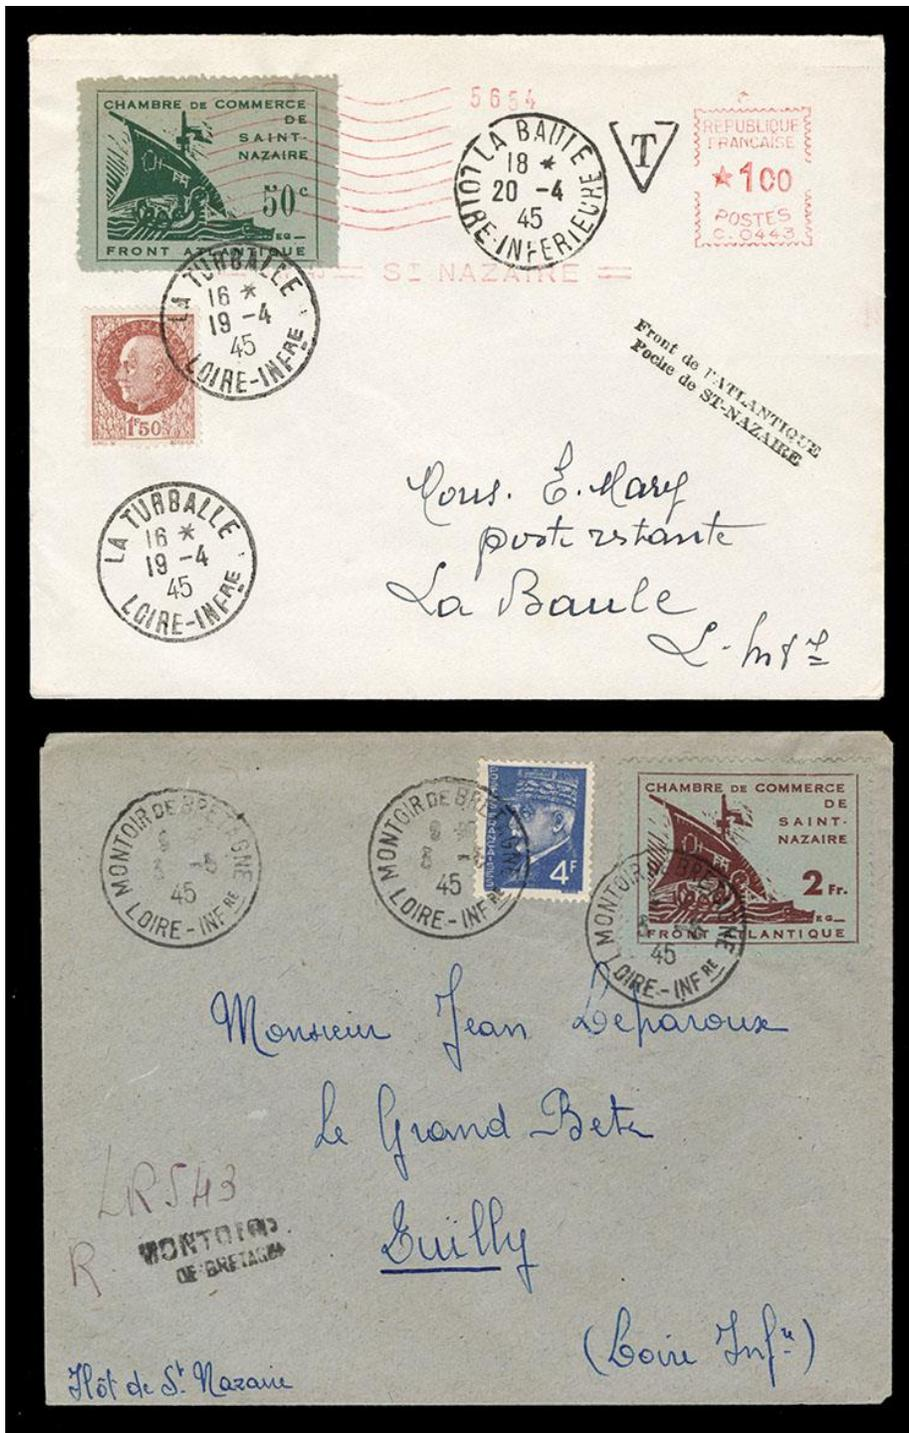 CHAMBRE DE COMMERCE
DE
SAINT-
NAZAIRE
50c
EG
FRONT ATLANTIQUE
5654
LA BAULE
18 *
20 -4
45
LOIRE-INFERIEURE
T
REPUBLIQUE
FRANCAISE
*100
POSTES
C. 0443
ST NAZAIRE
LA TURBALLE
16 *
19 -4
45
LOIRE-INFRE
1F50
Front de l'ATLANTIQUE
Poche de ST-NAZAIRE
LA TURBALLE
16 *
19 -4
45
LOIRE-INFRE
Mons. E. Mary
poste restante
La Baule
L. Infre
MONTOIR DE BRETAGNE
9
-5
45
LOIRE-INFRE
MONTOIR DE BRETAGNE
9
45
LOIRE-INFRE
4F
CHAMBRE DE COMMERCE
DE
SAINT-
NAZAIRE
2 Fr.
EG
FRONT ATLANTIQUE
MONTOIR DE BRETAGNE
45
LOIRE-INFRE
Monsieur Jean Deparoux
Le Grand Betz
Guilly
LR543
R
MONTOIR
DE BRETAGNE
(Loire Infre)
Ilôt de St Nazaire